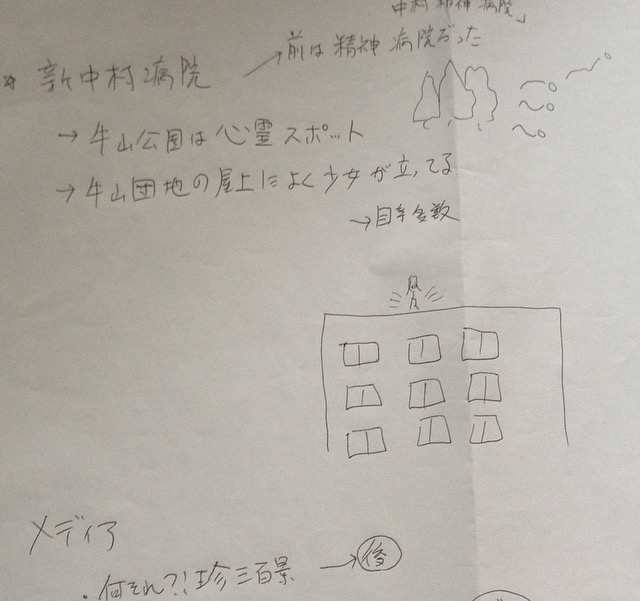 中村精神病院」
*新中村病院 →前は精神病院だった
→牛山公園は心霊スポット
→牛山団地の屋上によく少女が立ってる
→多数
メディア
・何それ?!珍三百景 →後